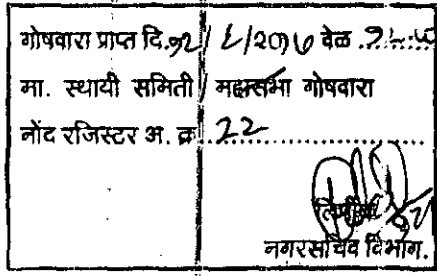 गोषवारा प्राप्त दि.१२/८/२०१७ वेळ
मा. स्थायी समिती / महासभा गोषवारा
नोंद रजिस्टर अ. क्र २२
लिपीक
नगरसचिव विभाग.